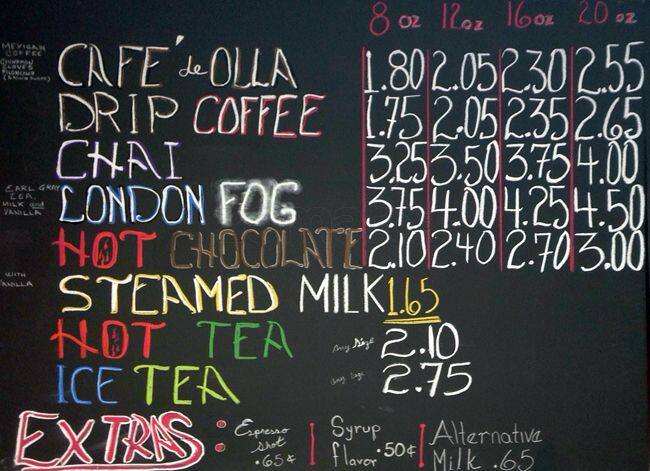 8 oz 12oz 16oz 20 oz
MEXICAN
COFFEE
CINNAMON
CLOVES
PILONCILLO
(BROWN SUGAR)
CAFÉ de OLLA 1.80 2.05 2.30 2.55
DRIP COFFEE 1.75 2.05 2.35 2.65
CHAI 3.25 3.50 3.75 4.00
EARL GRAY
TEA,
MILK and
VANILLA
LONDON FOG 3.75 4.00 4.25 4.50
HOT CHOCOLATE 2.10 2.40 2.70 3.00
WITH
VANILLA
STEAMED MILK 1.65
HOT TEA any size 2.10
ICE TEA any size 2.75
EXTRAS:
Espresso
shot
.65¢
Syrup
flavor .50¢
Alternative
Milk .65